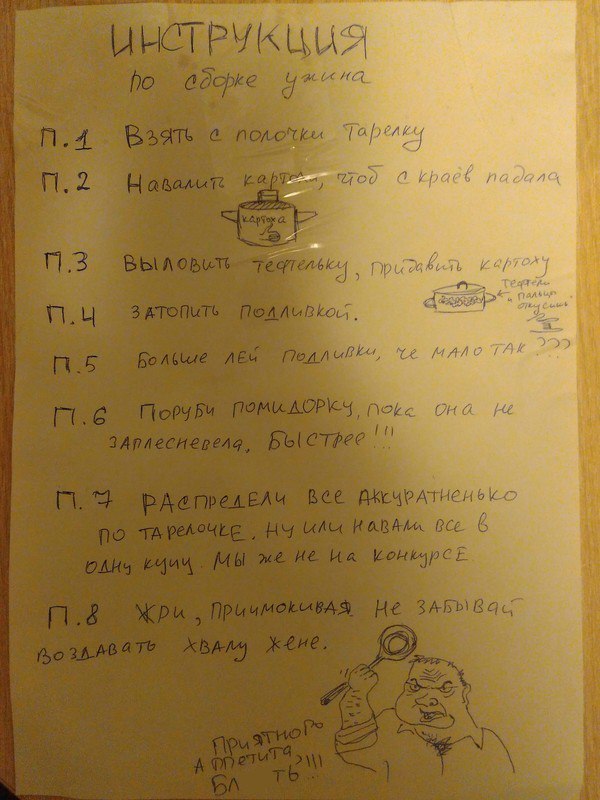 ИНСТРУКЦИЯ
по сборке ужина
П.1 Взять с полочки тарелку
П.2 Навалить картохи, чтоб с краёв падала
картоха
П.3 Выловить тефтельку, придавить картоху
Тефтели
пальцы
откусишь
П.4 Затопить подливкой.
П.5 Больше лей подливки, че мало так ???
П.6 Поруби помидорку, пока она не
заплесневела, быстрее!!!
П.7 Распредели все аккуратненько
по тарелочке. Ну или навали все в
одну кучу. Мы же не на конкурсе
П.8 Жри, причмокивая не забывай
воздавать хвалу жене.
Приятного
Аппетита
Бл ть!!!